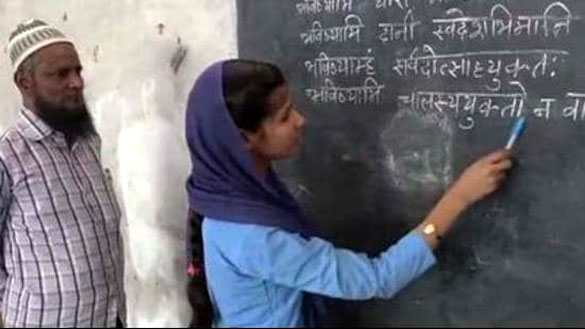 भविष्यामि
भविष्यामि दानी स्वदेशभिमानि
भविष्याम्हं सर्वदोत्साहयुक्तः
भविष्यामि चालस्ययुक्तो न वा